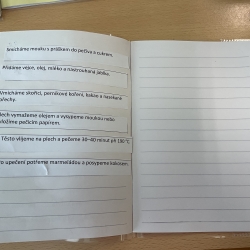 Smícháme mouku s práškem do pečiva a cukrem.
Přidáme vejce, olej, mléko a nastrouhaná jablka.
Vmícháme skořici, perníkové koření, kakao a nasekané
ořechy.
Plech vymažeme olejem a vysypeme moukou nebo
vložíme pečicím papírem.
Těsto vlijeme na plech a pečeme 30–40 minut při 150 °C
Po upečení potřeme marmeládou a posypeme kokosem.